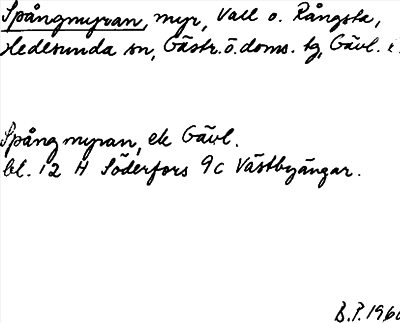 Spångmyran, myr, Vall o. Rångsta,
Hedesunda sn, Gästr.ö.doms. tg, Gävl.
Spångmyran, ek Gävl.
bl. 12 H Söderfors 9c Västbyängar.
B.P. 1960